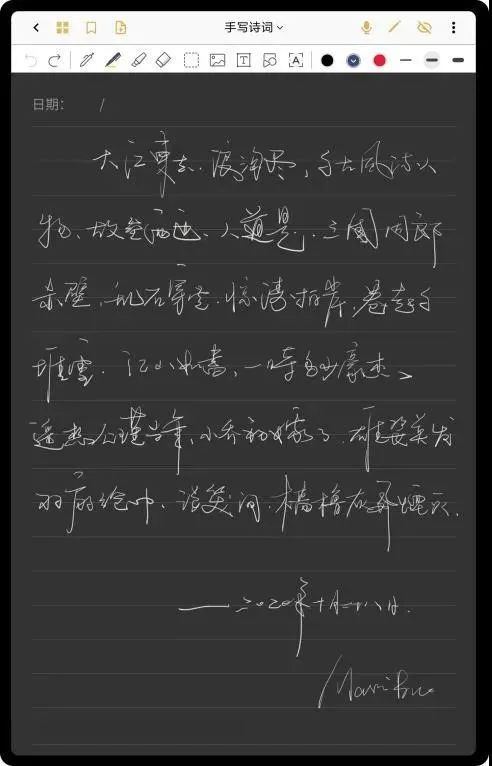 手写诗词
日期： /
大江東去．浪淘尽，千古风流人
物、故垒西边、人道是．三國周郎
赤壁．乱石穿空．惊涛拍岸，卷起千
堆雪．江山如畫，一時多少豪杰
遥想公瑾当年，小乔初嫁了．雄姿英发
羽扇纶巾、谈笑间．樯橹灰飛煙灭．
——二〇二〇年十月